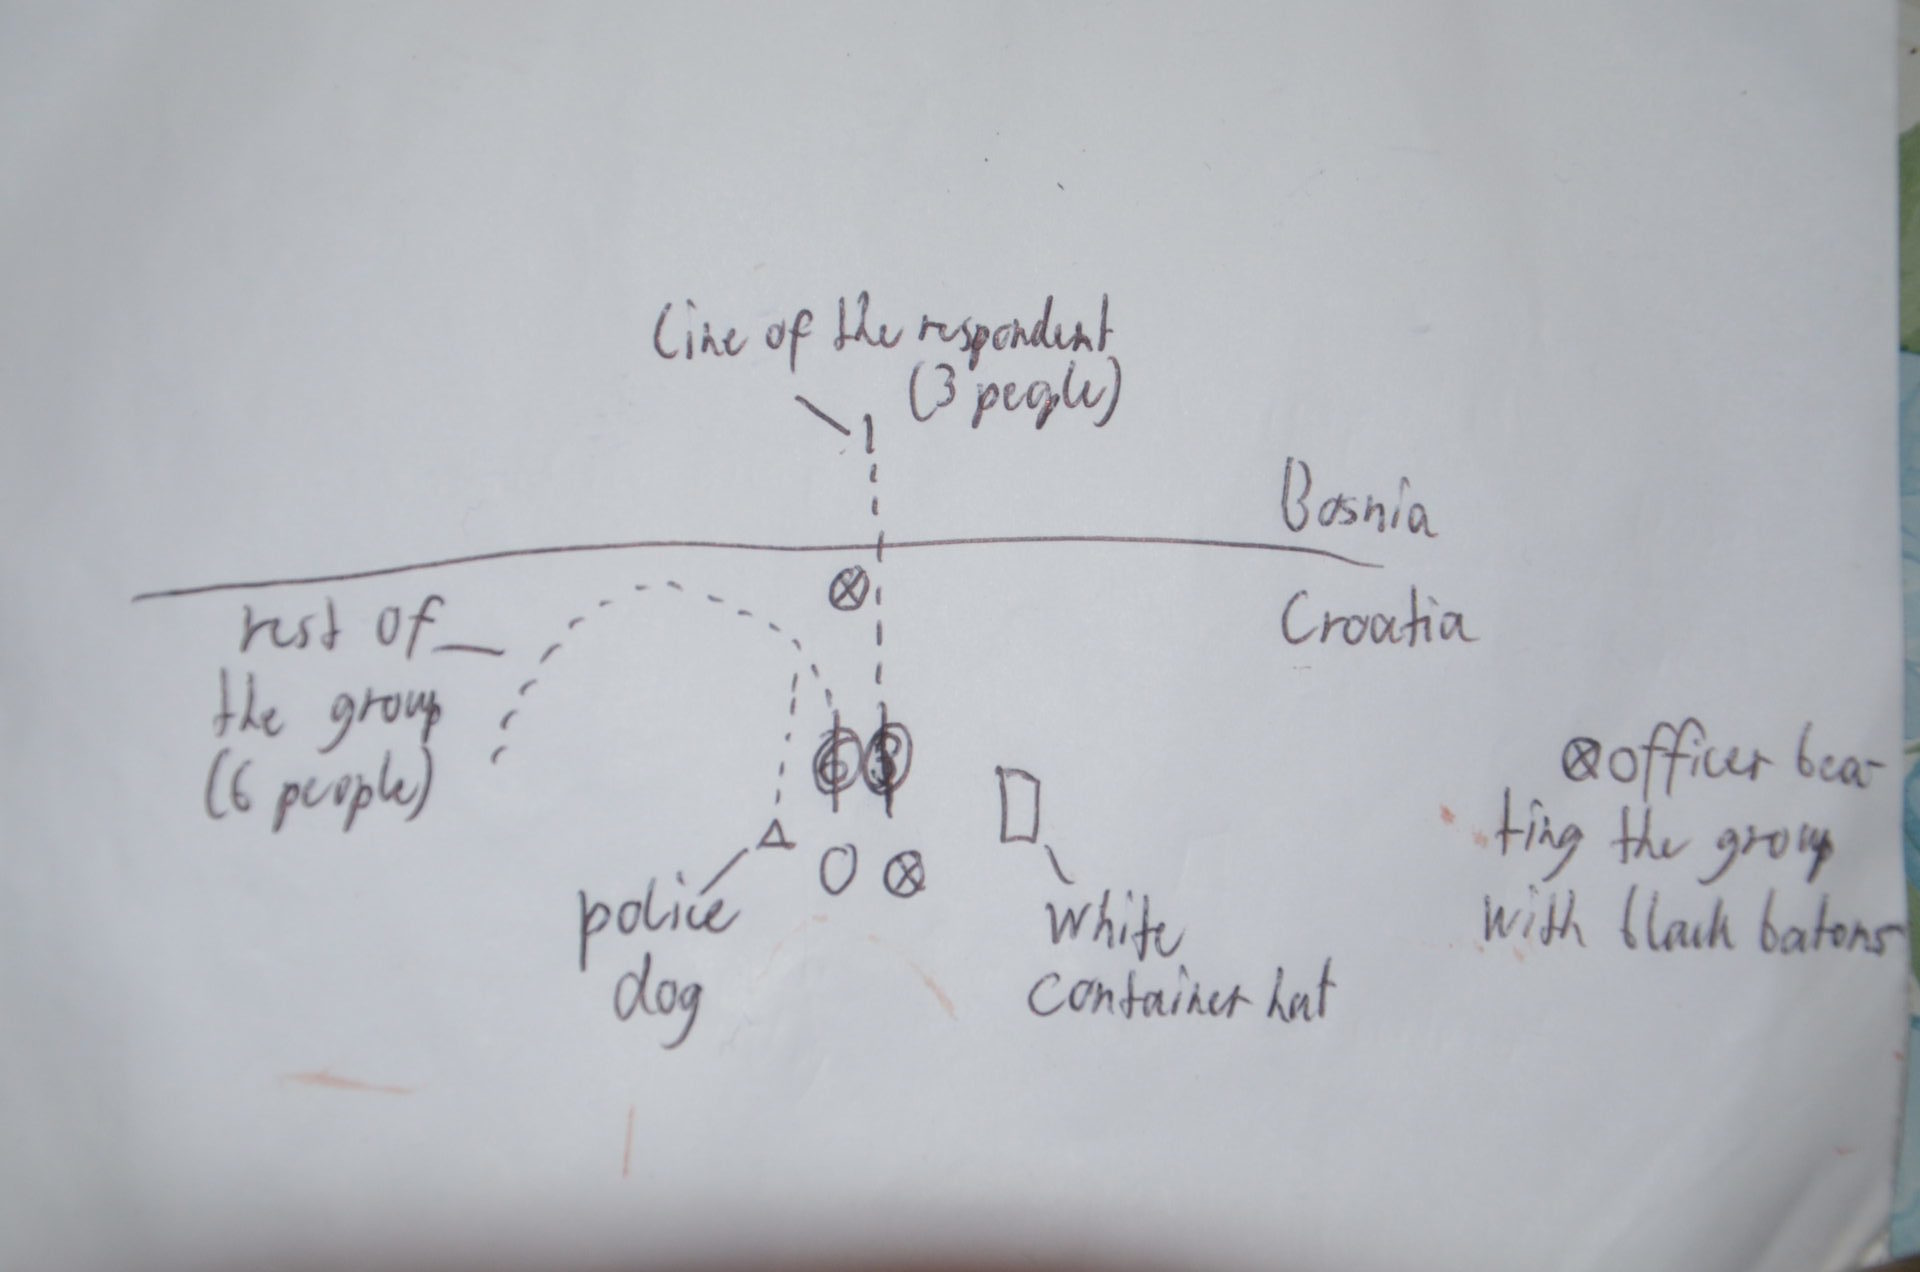 Line of the respondent
(3 people)
Bosnia
Croatia
rest of
the group
(6 people)
6 3
police
dog
white
container hut
⊗ officer bea-
ting the group
with black batons